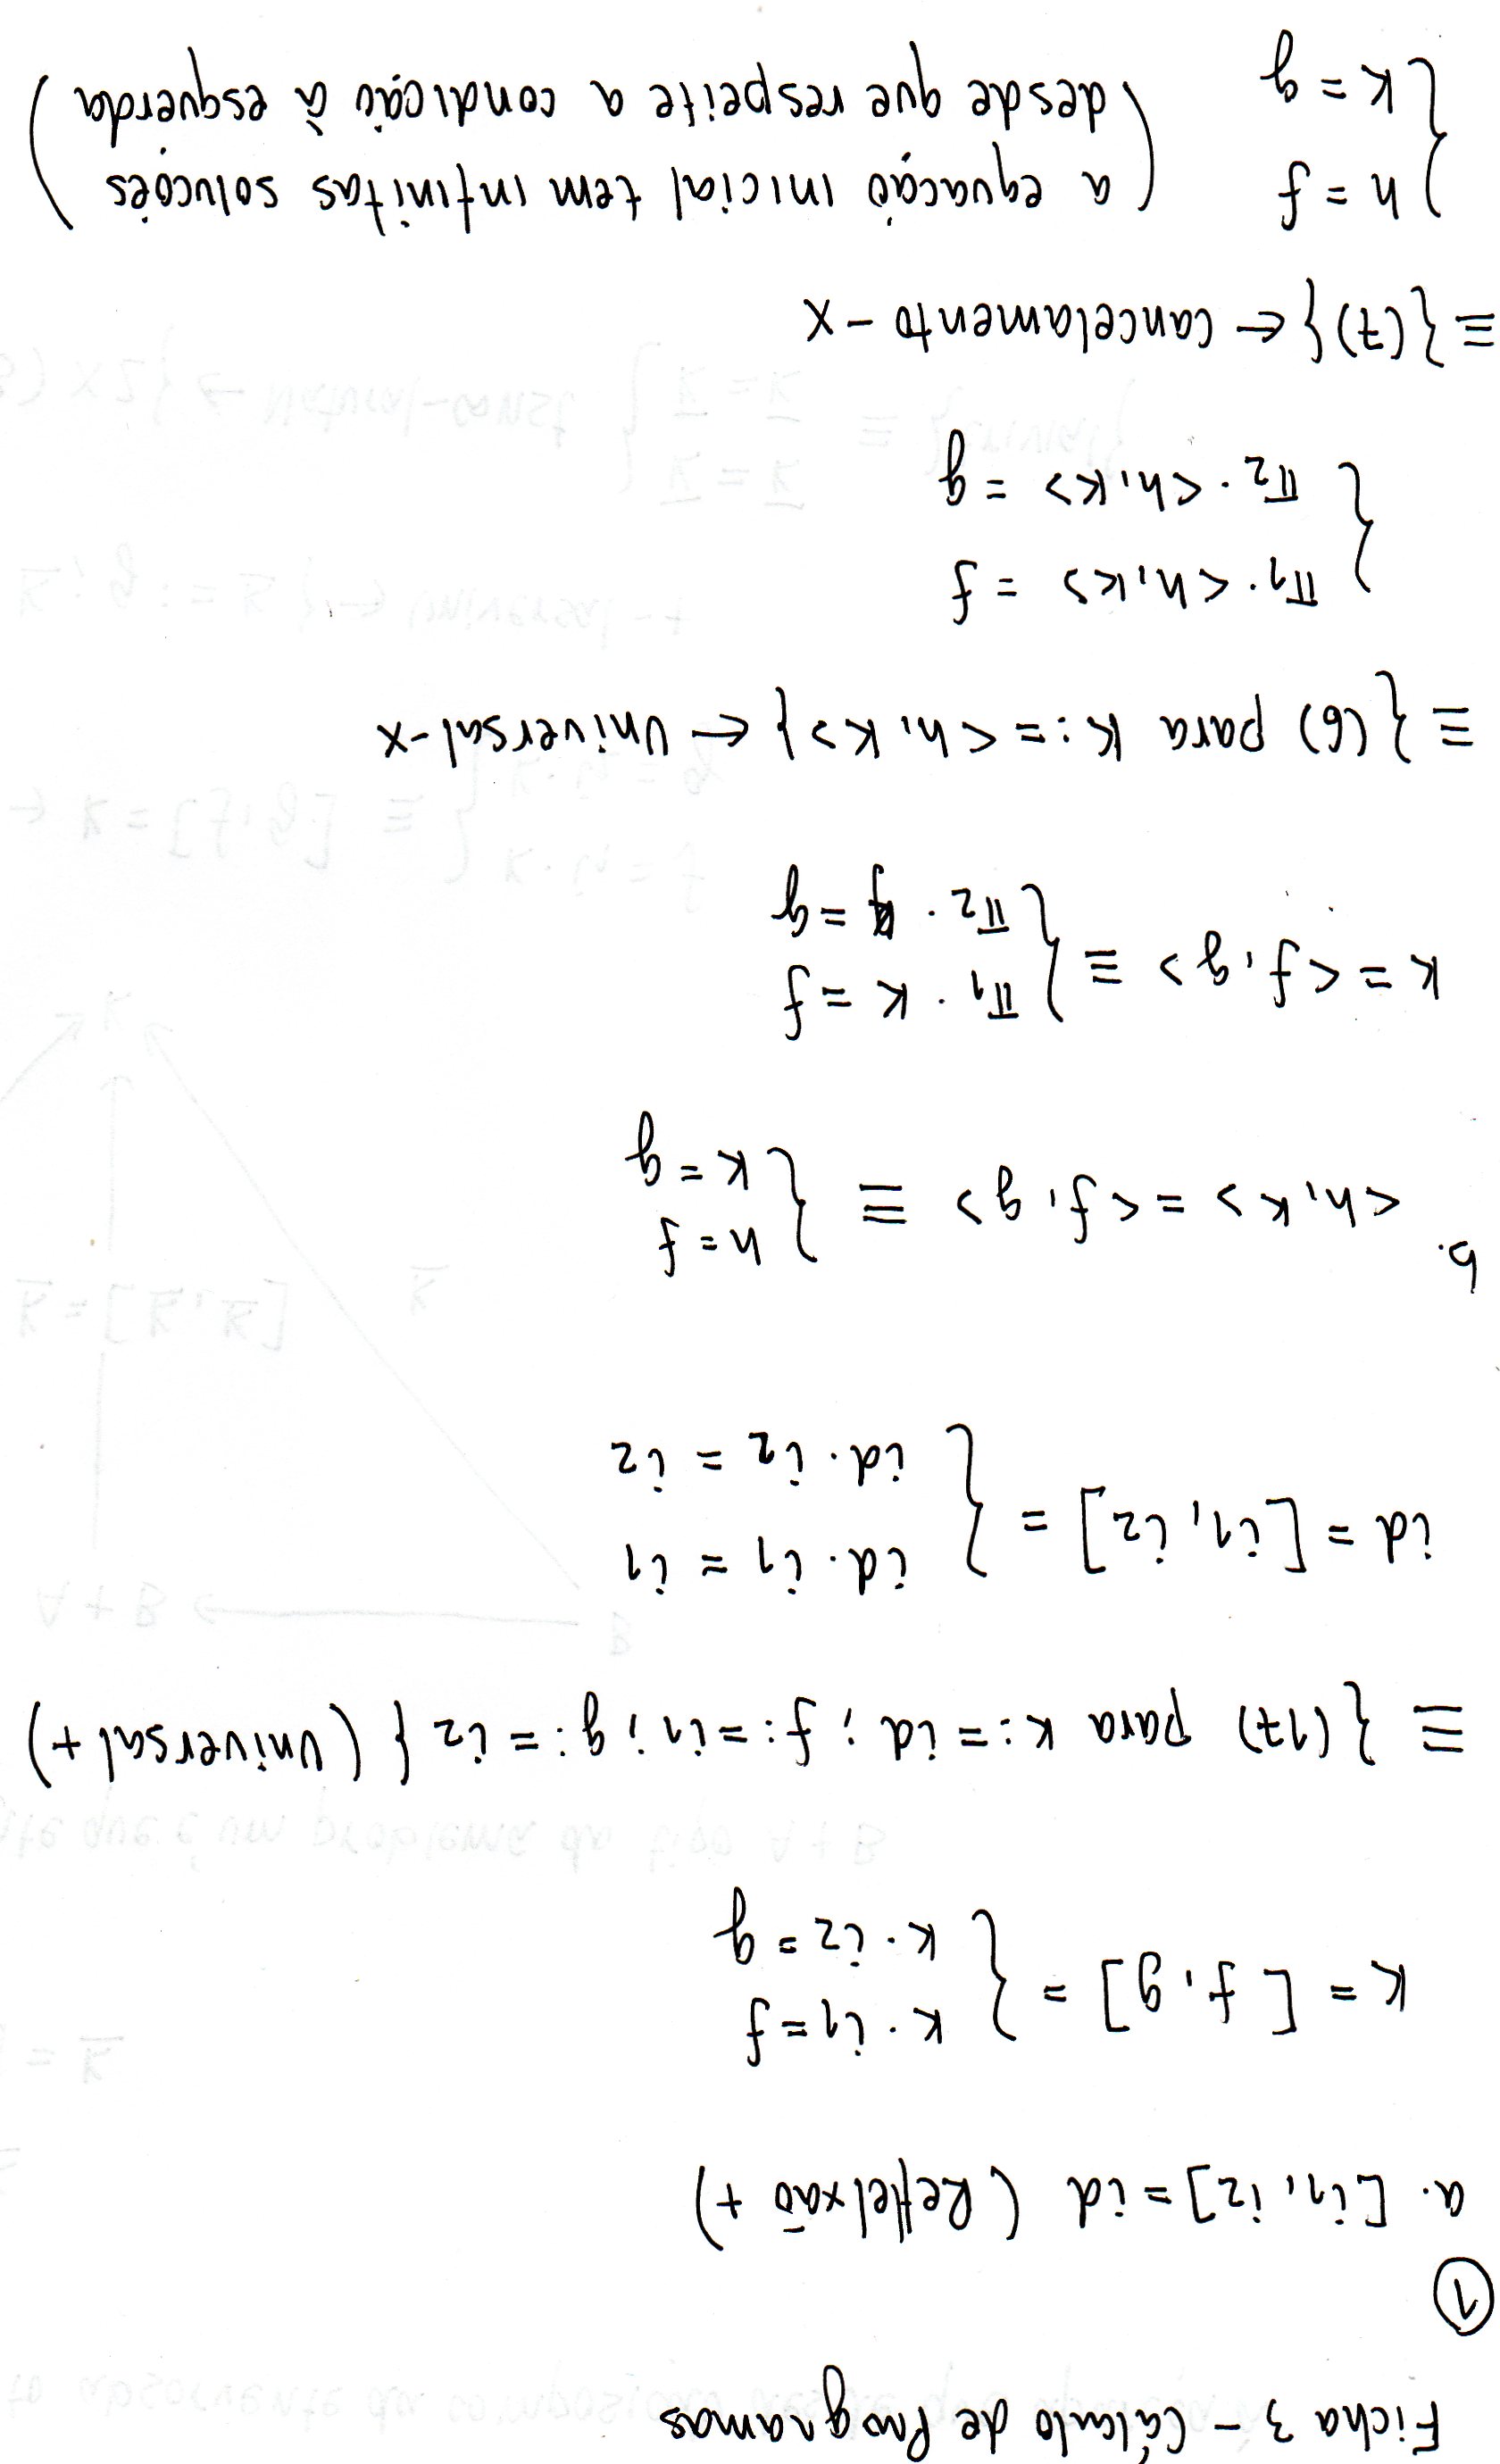 Ficha 3 - Cálculo de Programas
①
a. [i1, i2] = id (Reflelxão +)
k = [f, g] = { k · i1 = f
k · i2 = g
≡ {(17) para k := id ; f := i1 ; g := i2 } (Universal +)
id = [i1, i2] = { id · i1 = i1
id · i2 = i2
b.
<h, k> = <f, g> ≡ { h = f
k = g
k = <f, g> ≡ { π1 · k = f
π2 · g = g
≡ {(6) para k := <h, k>} ← Universal-x
{ π1 · <h, k> = f
π2 · <h, k> = g
≡ {(7)} ← cancelamento - x
{ h = f (a equação inicial tem infinitas soluções
k = g desde que respeite a condição à esquerda)